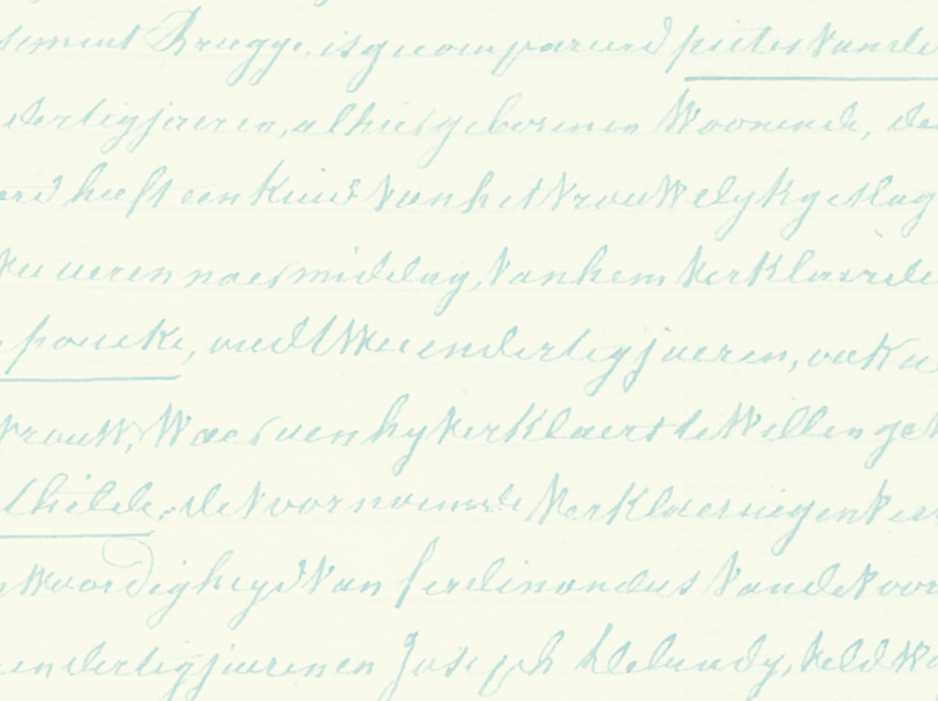 sement Brugge, is gecompareerd pieter Vande
dertig jaeren, alhier geboren en Woonende, de
erd heeft een Kind Van het Vrouwelyk geslag
ueren naer middag, Van hem Verklaerde
poucke, oud twee en dertig jaeren, ook
vrouw, Waer van hy Verklaert te Willen gev
thilde, de Voornoemde Verklaeringen
woordigheyd Van ferdinandus VandeVoor
en dertig jaeren en Joseph Debundy, Veld